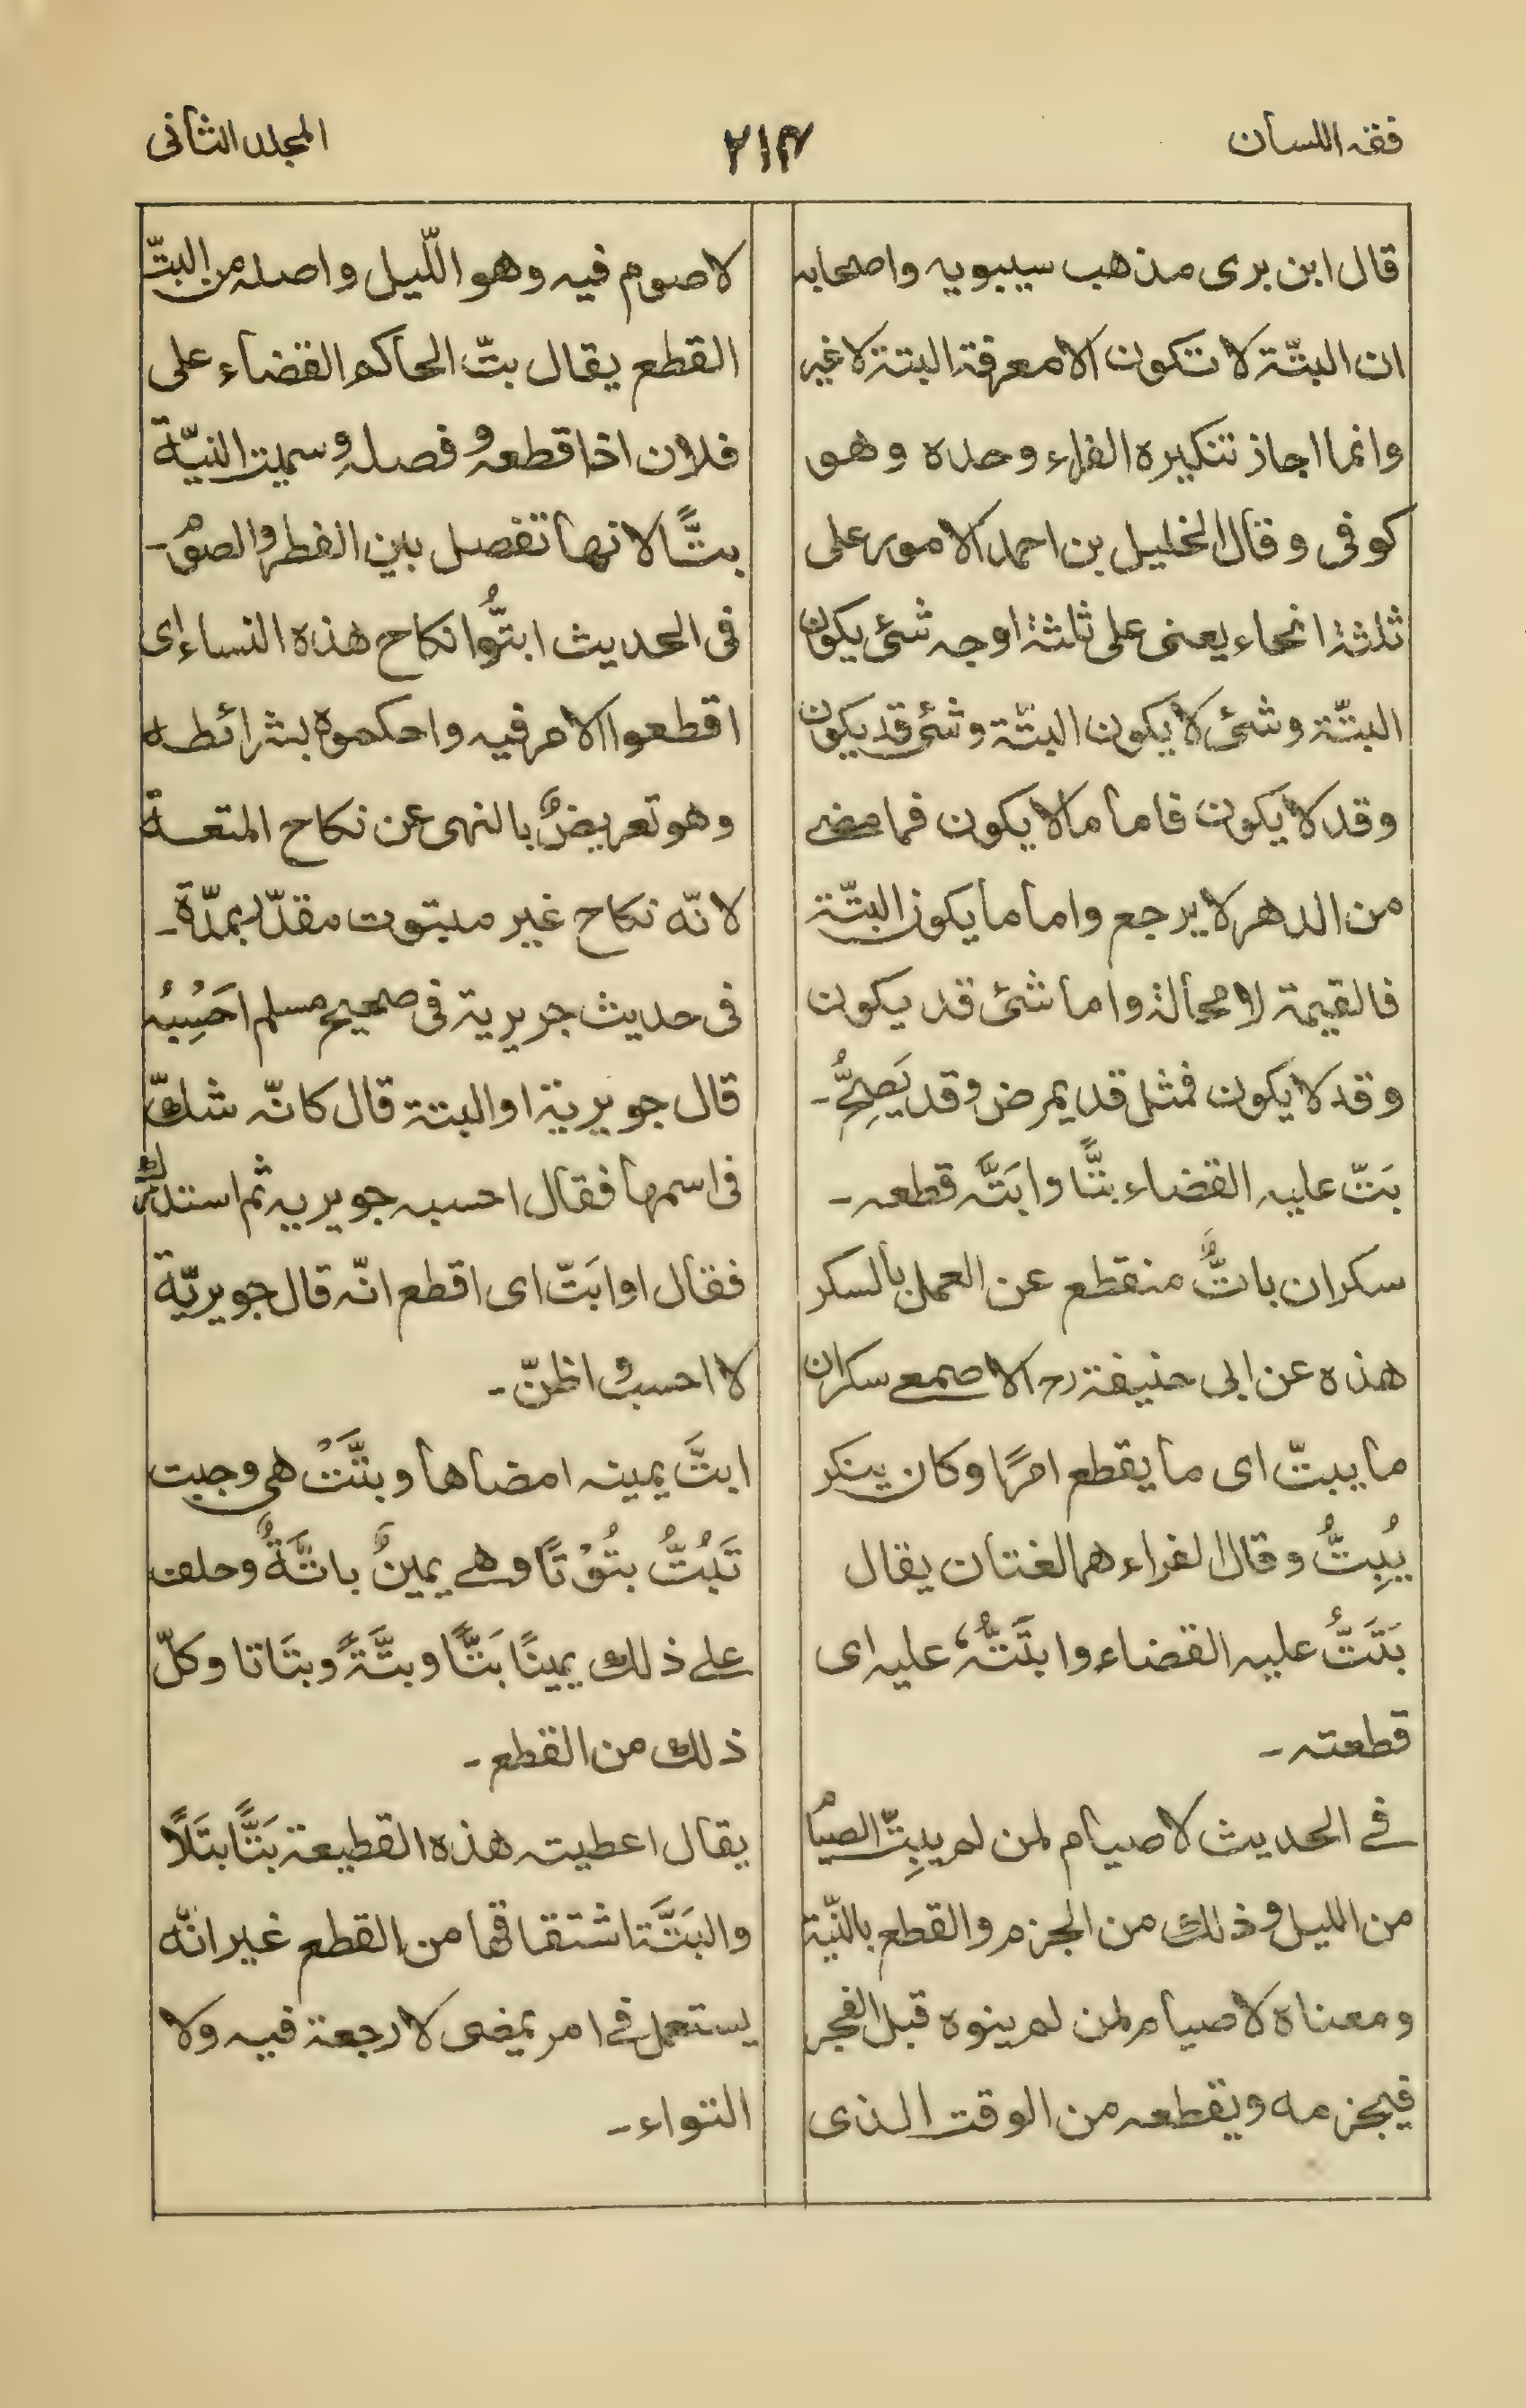 فقه اللسان
۲۱۴
المجلد الثانی
قال ابن بری مذهب سیبویه واصحابه
ان البتّة لا تکون الا معرفة البتة لا غیر
وانما اجاز تنکیره الفراء وحده وهو
کوفی وقال الخلیل بن احمد الامور علی
ثلثة انحاء یعنی علی ثلثة اوجه شئ یکون
البتّة وشئ لا یکون البتّة وشئ قد یکون
وقد لا یکون فاما ما لا یکون فما مضے
من الدهر لا یرجع واما ما یکون البتّة
فالقیمة لا محالة واما شئ قد یکون
وقد لا یکون فمثل قد یمرض وقد یَصِحُّ۔
بَتّ علیه القضاء بتًّا وابَتَّه قطعه۔
سکران باتٌّ منقطع عن العمل بالسکر
هذه عن ابی حنیفة رح الاصمعے سکران
ما یبتّ ای ما یقطع امرًا وکان ینکر
یُبِتُّ وقال الفراء هما لغتان یقال
بَتَتُّ علیه القضاء وابتَتُّه علیه ای
قطعته۔
فے الحدیث لا صیام لمن لم یبِتّ الصیام
من اللیل وذلک من الجزم والقطع بالنّیة
ومعناه لا صیام لمن لم ینوه قبل الفجر
فیجزمه ویقطعه من الوقت الذی
لا صوم فیه وهو اللّیل واصله من البتّ
القطع یقال بتّ الحاکم القضاء علی
فلان اذا قطعه وفصله وسمیت النیّة
بتًّا لانها تفصل بین الفطر والصوم۔
فی الحدیث ابتُّوا نکاح هذه النساء ای
اقطعوا الامر فیه واحکموه بشرائطه
وهو تعریضٌ بالنهی عن نکاح المتعة
لانّه نکاح غیر مبتوت مقدّر بمدّة۔
فی حدیث جریریة فی صحیح مسلم احَسِبُه
قال جویریة او البتة قال کانّه شک
فی اسمها فقال احسبه جویریه ثم استدرک
فقال او ابَتّ ای اقطع انّه قال جویریّة
لا احسب واظنّ۔
ابتَّ یمینه امضاها وبتَّتْ هی وجبت
تَبُتُّ بتُوْتًا وهے یمینٌ باتّةٌ وحلف
علے ذلک یمینًا بَتًّا وبتَّةً وبتَاتا وکلّ
ذلک من القطع۔
یقال اعطیته هذه القطیعة بَتًّا بتَلًا
والبَتَّة اشتقاقها من القطع غیر انّه
یستعمل فے امر یمضی لا رجعة فیه ولا
التواء۔